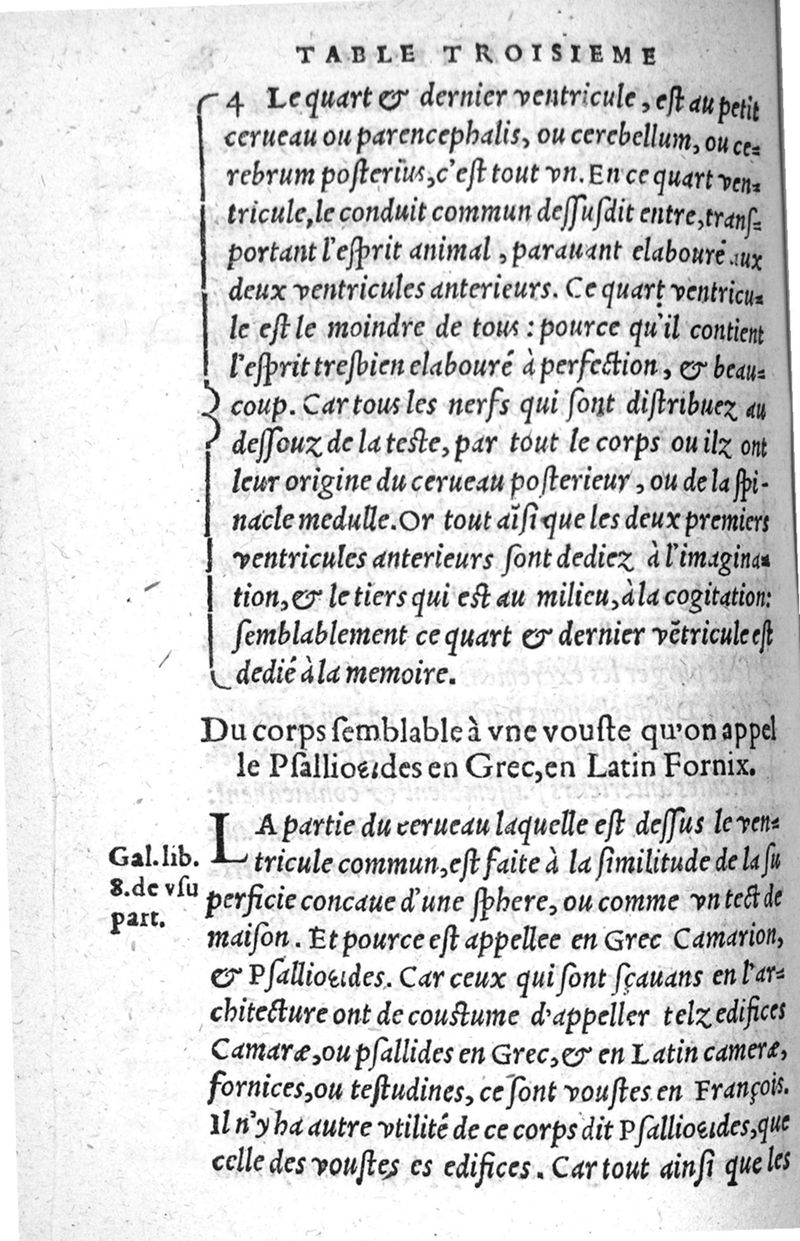 TABLE TROISIEME
4 Le quart & dernier ventricule, eſt au petit
cerueau ou parencephalis, ou cerebellum, ou ce-
rebrum poſterius, c'eſt tout vn. En ce quart ven-
tricule, le conduit commun deſſuſdit entre, tranſ-
portant l'eſprit animal, parauant elabouré aux
deux ventricules anterieurs. Ce quart ventricu-
le eſt le moindre de tous : pource qu'il contient
l'eſprit treſbien elabouré à perfection, & beau-
coup. Car tous les nerfs qui ſont diſtribuez au
deſſouz de la teſte, par tout le corps ou ilz ont
leur origine du cerueau poſterieur, ou de la ſpi-
nacle medulle. Or tout aīſi que les deux premiers
ventricules anterieurs ſont dediez à l'imagina-
tion, & le tiers qui eſt au milieu, à la cogitation:
ſemblablement ce quart & dernier vētricule eſt
dedié à la memoire.
Du corps ſemblable à vne vouſte qu'on appel
le Pſallioeides en Grec, en Latin Fornix.
LA partie du cerueau laquelle eſt deſſus le ven-
Gal. lib. tricule commun, eſt faite à la ſimilitude de la ſu
8. de vſu perficie concaue d'une ſphere, ou comme vn tect de
part. maiſon. Et pource eſt appellee en Grec Camarion,
& Pſallioeides. Car ceux qui ſont ſçauans en l'ar-
chitecture ont de couſtume d'appeller telz edifices
Camaræ, ou pſallides en Grec, & en Latin cameræ,
fornices, ou teſtudines, ce ſont vouſtes en François.
Il n'y ha autre vtilité de ce corps dit Pſallioeides, que
celle des vouſtes es edifices. Car tout ainſi que les